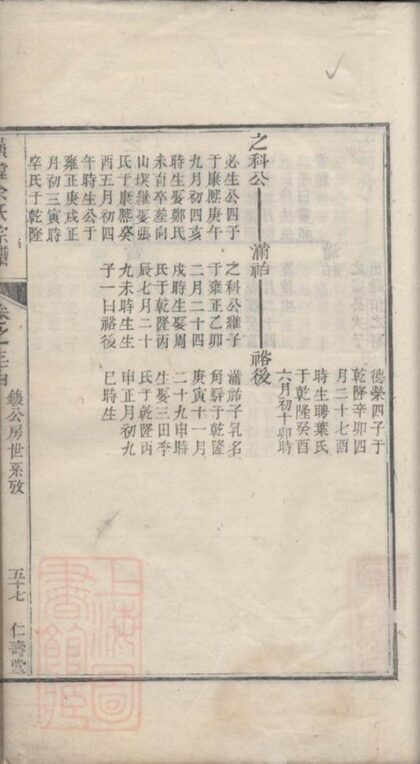 德榮四子于
乾隆辛卯四
月二十七酉
時生聘葉氏
于乾隆癸酉
六月初十卯時
之科公
滿祐
裕後
必生公四子
于康熙庚午
九月初四亥
時生娶鄭氏
未育卒葬向
山墺繼娶張
氏于康熙癸
酉五月初四
午時生公于
雍正庚戌正
月初三寅時
卒氏于乾隆
之科公繼子
于雍正乙卯
二月二十四
戌時生娶周
氏于乾隆丙
辰七月二十
九未時生生
子一曰裕後
滿祐子乳名
角驊于乾隆
庚寅十一月
二十九申時
生娶三田李
氏于乾隆丙
申正月初九
巳時生
余氏宗譜
卷之
公房世系攷
五十七
仁壽堂
上海圖書館藏